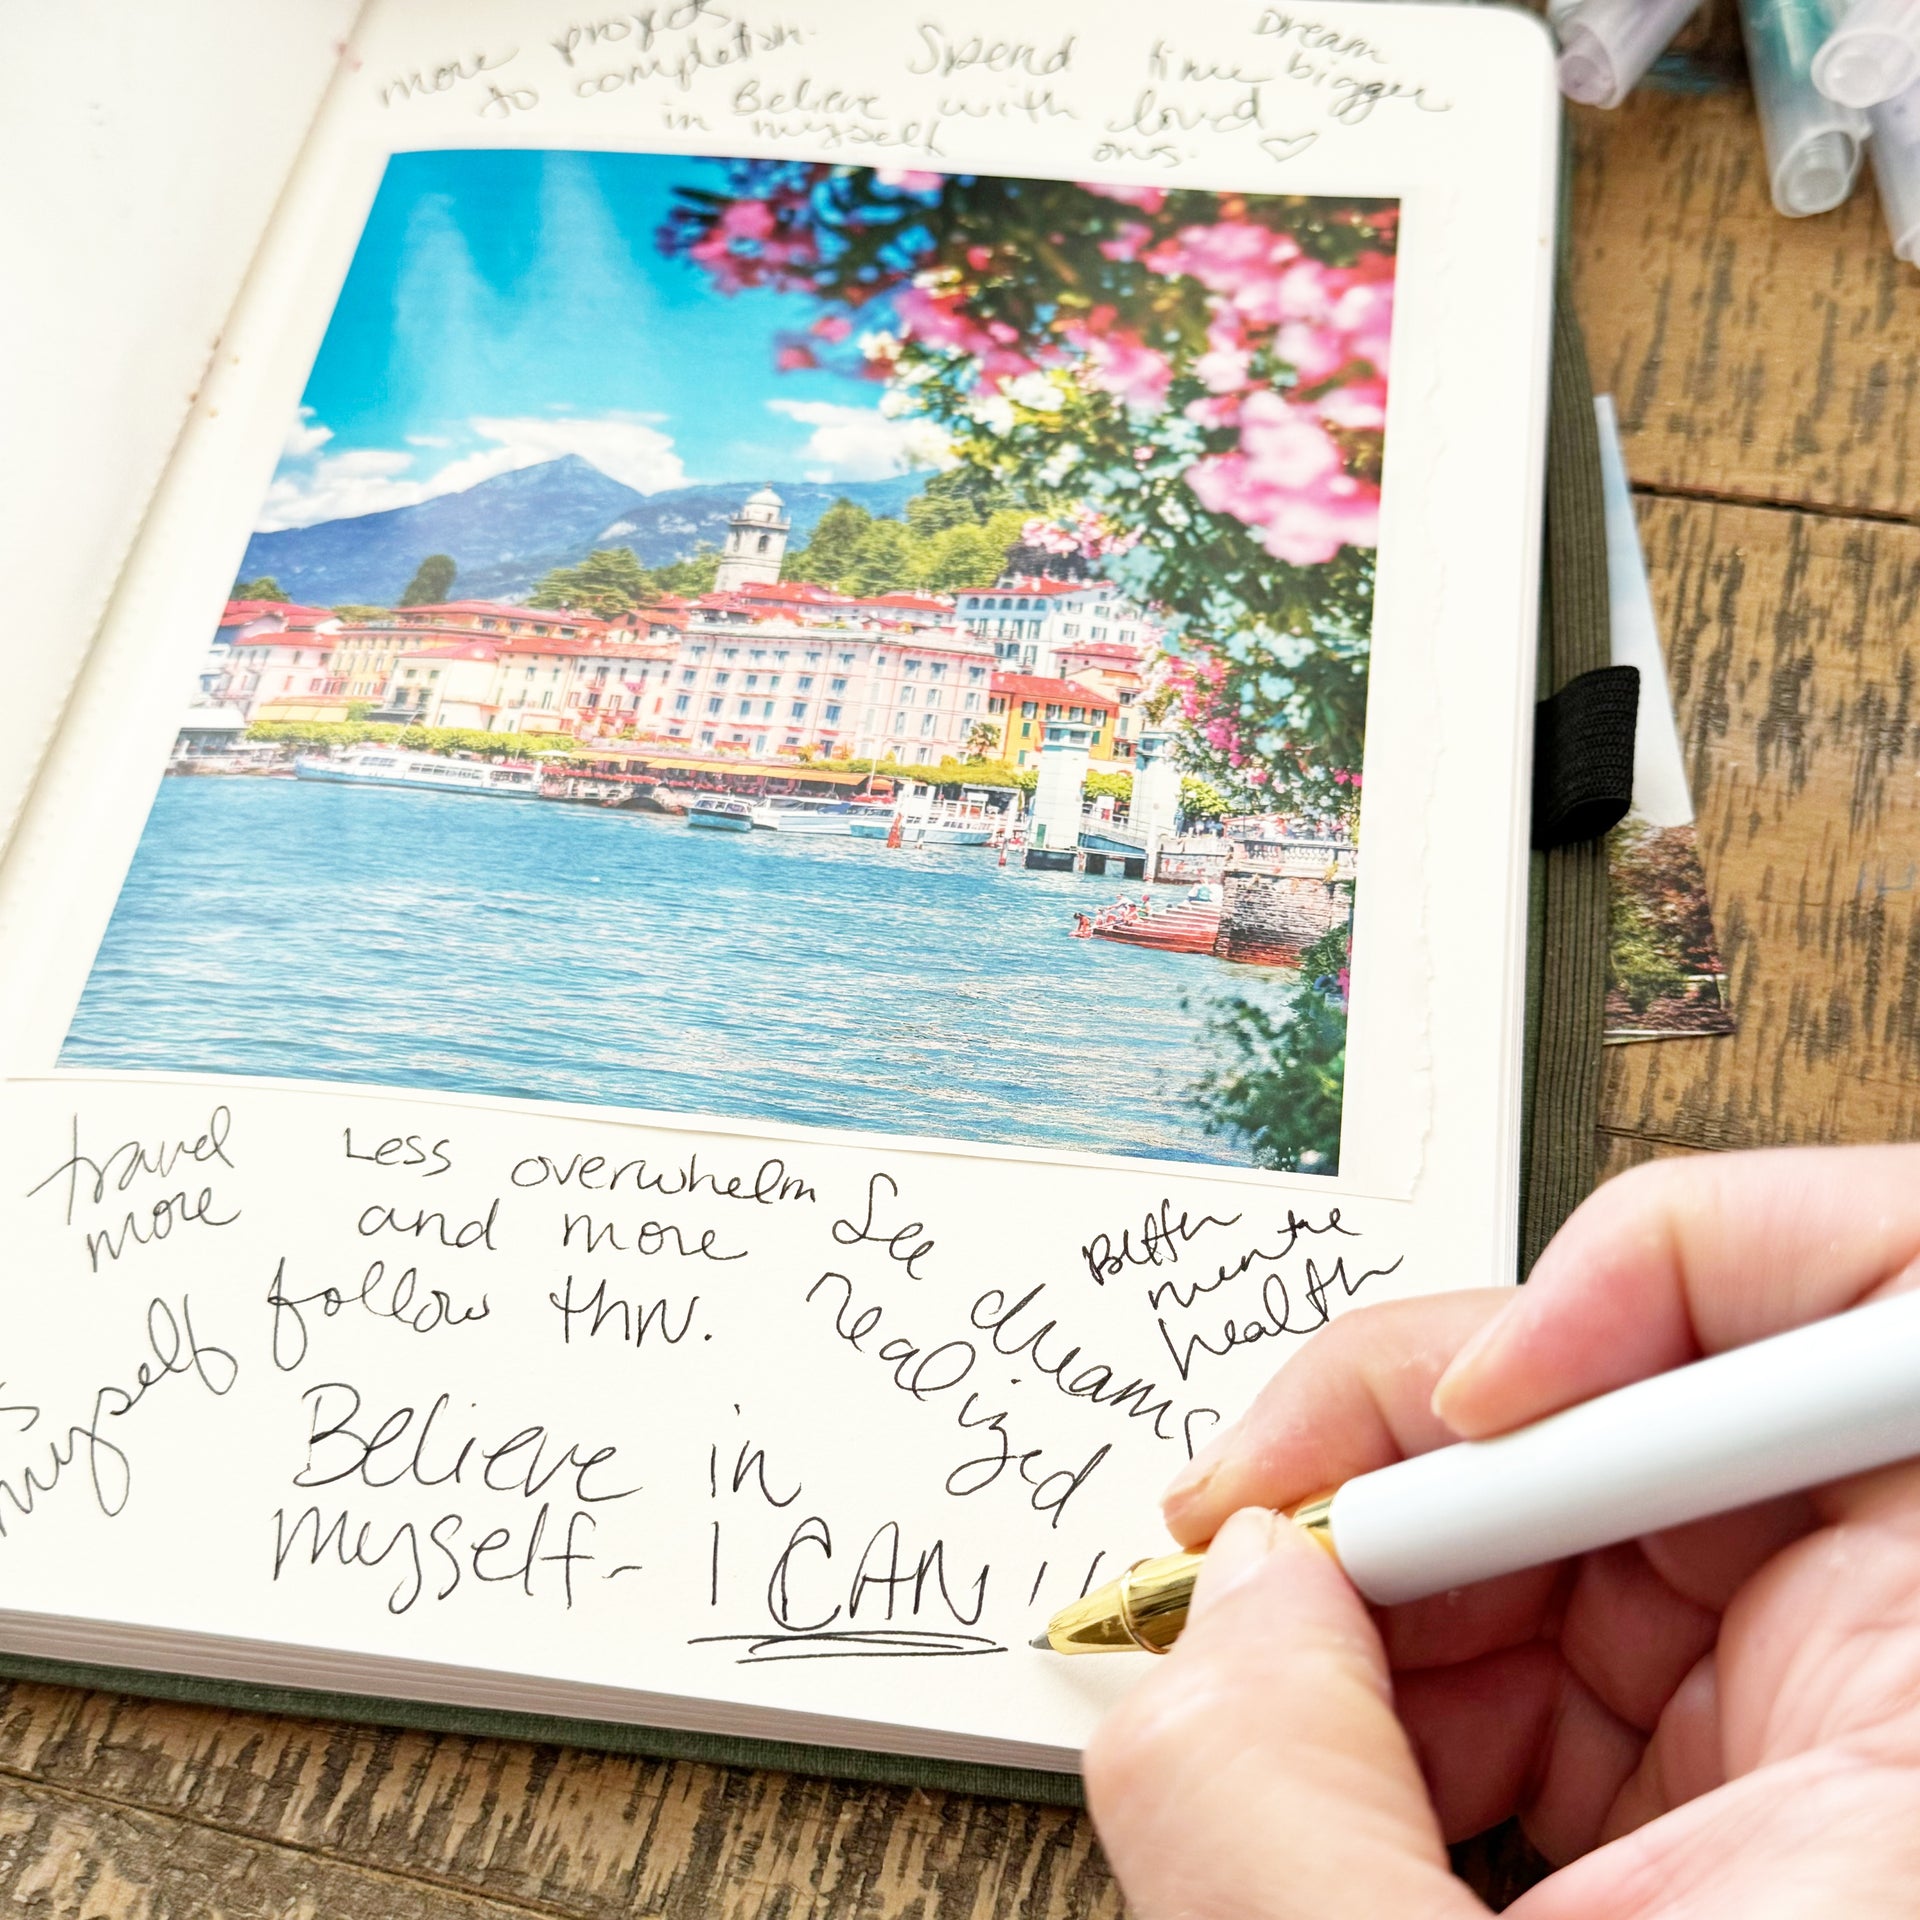 more projects
to completion.
Believe
in myself
Spend time
with loved
ones. ♡
Dream
bigger
travel
more
Less overwhelm
and more
follow thru.
See
dreams
realized
Better
mental
health
myself
Believe in
myself - I CAN!!